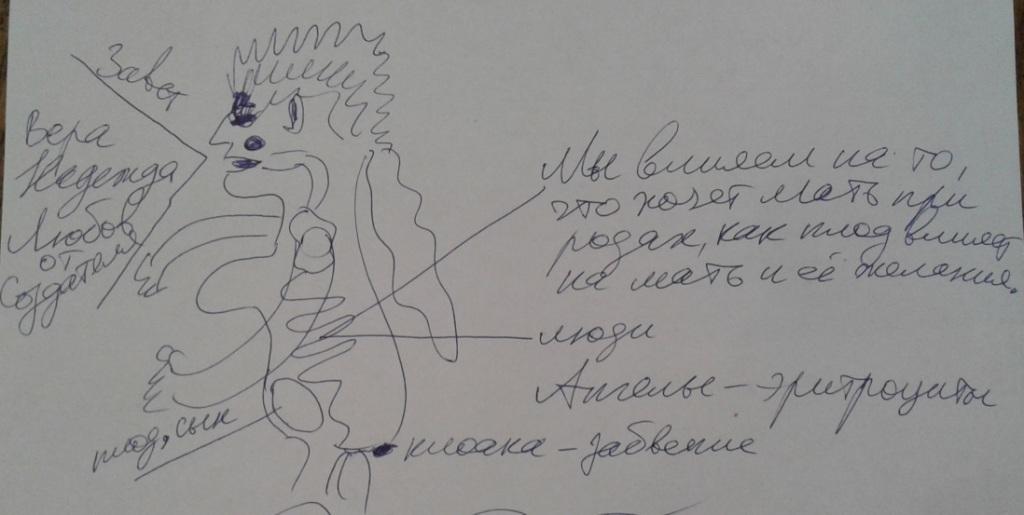 Завет
Вера
Надежда
Любов
от
Создателя
Мы влияем на то,
что хочет мать при
родах, как плод влияет
на мать и её желания.
люди
Ангелы – эритроциты
плод, сын
клоака – забвение